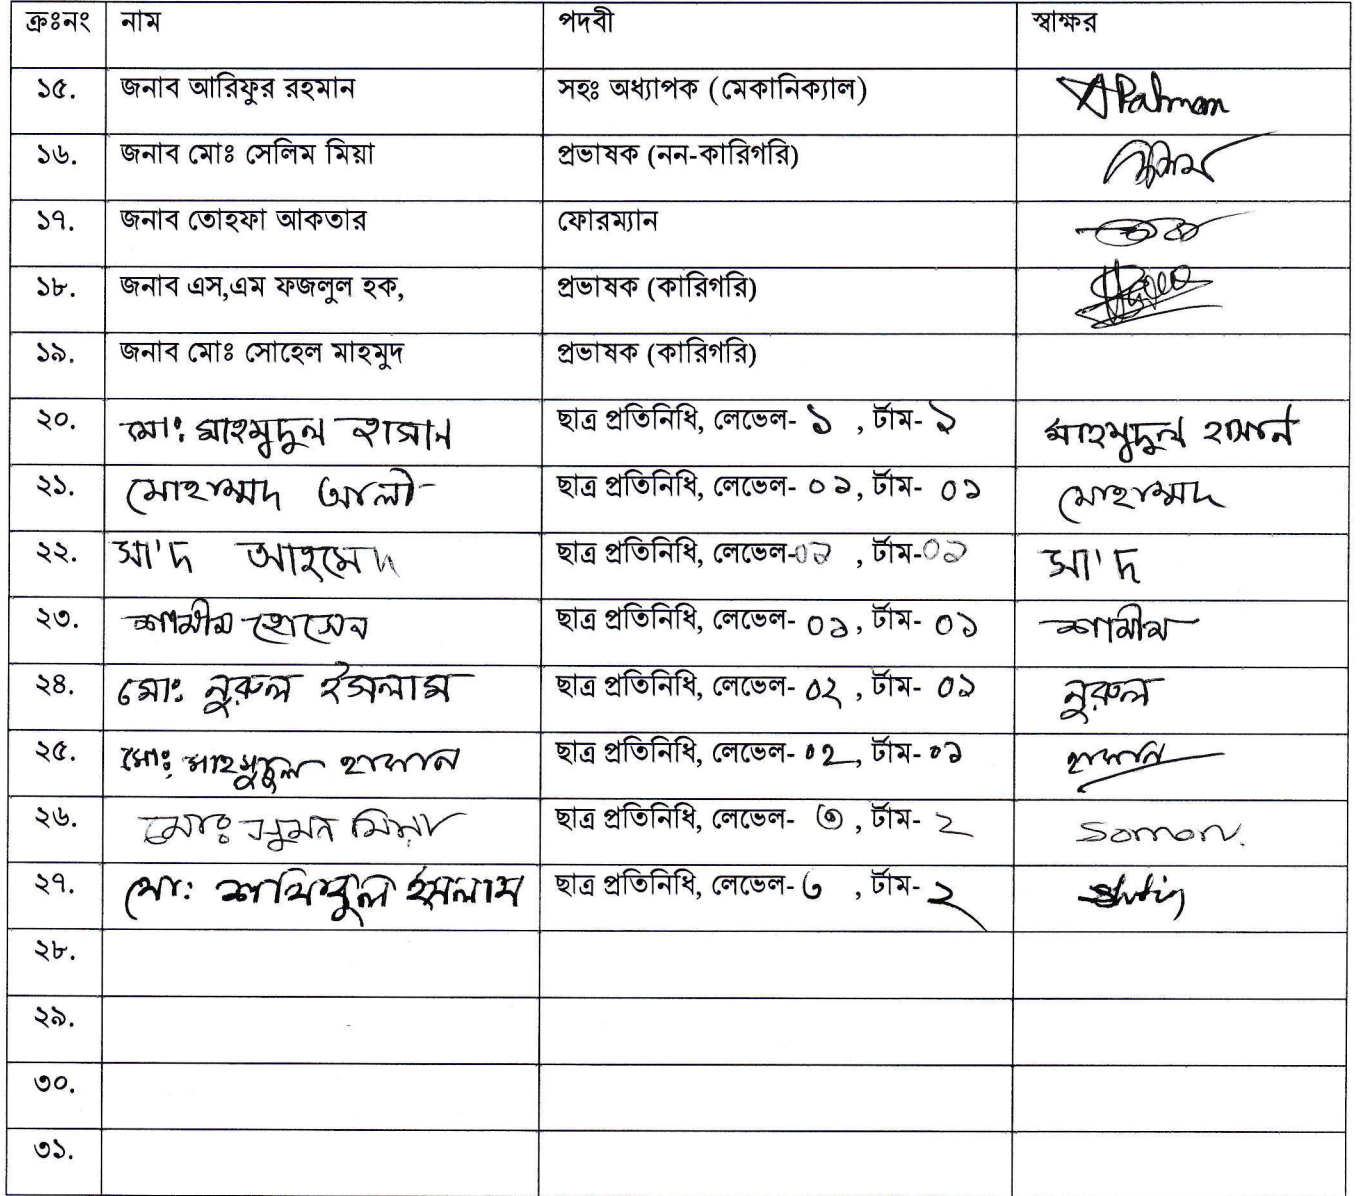 ক্রঃনং নাম পদবী স্বাক্ষর
১৫. জনাব আরিফুর রহমান সহঃ অধ্যাপক (মেকানিক্যাল) ARahman
১৬. জনাব মোঃ সেলিম মিয়া প্রভাষক (নন-কারিগরি)
১৭. জনাব তোহফা আকতার ফোরম্যান
১৮. জনাব এস,এম ফজলুল হক, প্রভাষক (কারিগরি)
১৯. জনাব মোঃ সোহেল মাহমুদ প্রভাষক (কারিগরি)
২০. মোঃ মাহমুদুল হাসান ছাত্র প্রতিনিধি, লেভেল- ১ , টার্ম- ১ মাহমুদুল হাসান
২১. মোহাম্মদ আলী ছাত্র প্রতিনিধি, লেভেল- ০১, টার্ম- ০১ মোহাম্মদ
২২. সা'দ আহমেদ ছাত্র প্রতিনিধি, লেভেল-০১ , টার্ম-০১ সা'দ
২৩. শামীম হোসেন ছাত্র প্রতিনিধি, লেভেল- ০১, টার্ম- ০১ শামীম
২৪. মোঃ নুরুল ইসলাম ছাত্র প্রতিনিধি, লেভেল- ০২ , টার্ম- ০১ নুরুল
২৫. মোঃ মাহমুদুল হাসান ছাত্র প্রতিনিধি, লেভেল-০২, টার্ম-০১ হাসান
২৬. মোঃ সুমন মিয়া ছাত্র প্রতিনিধি, লেভেল- ৩ , টার্ম- ২ Somon.
২৭. মোঃ ইসলাম ছাত্র প্রতিনিধি, লেভেল-৩ , টার্ম- ২
২৮.
২৯.
৩০.
৩১.